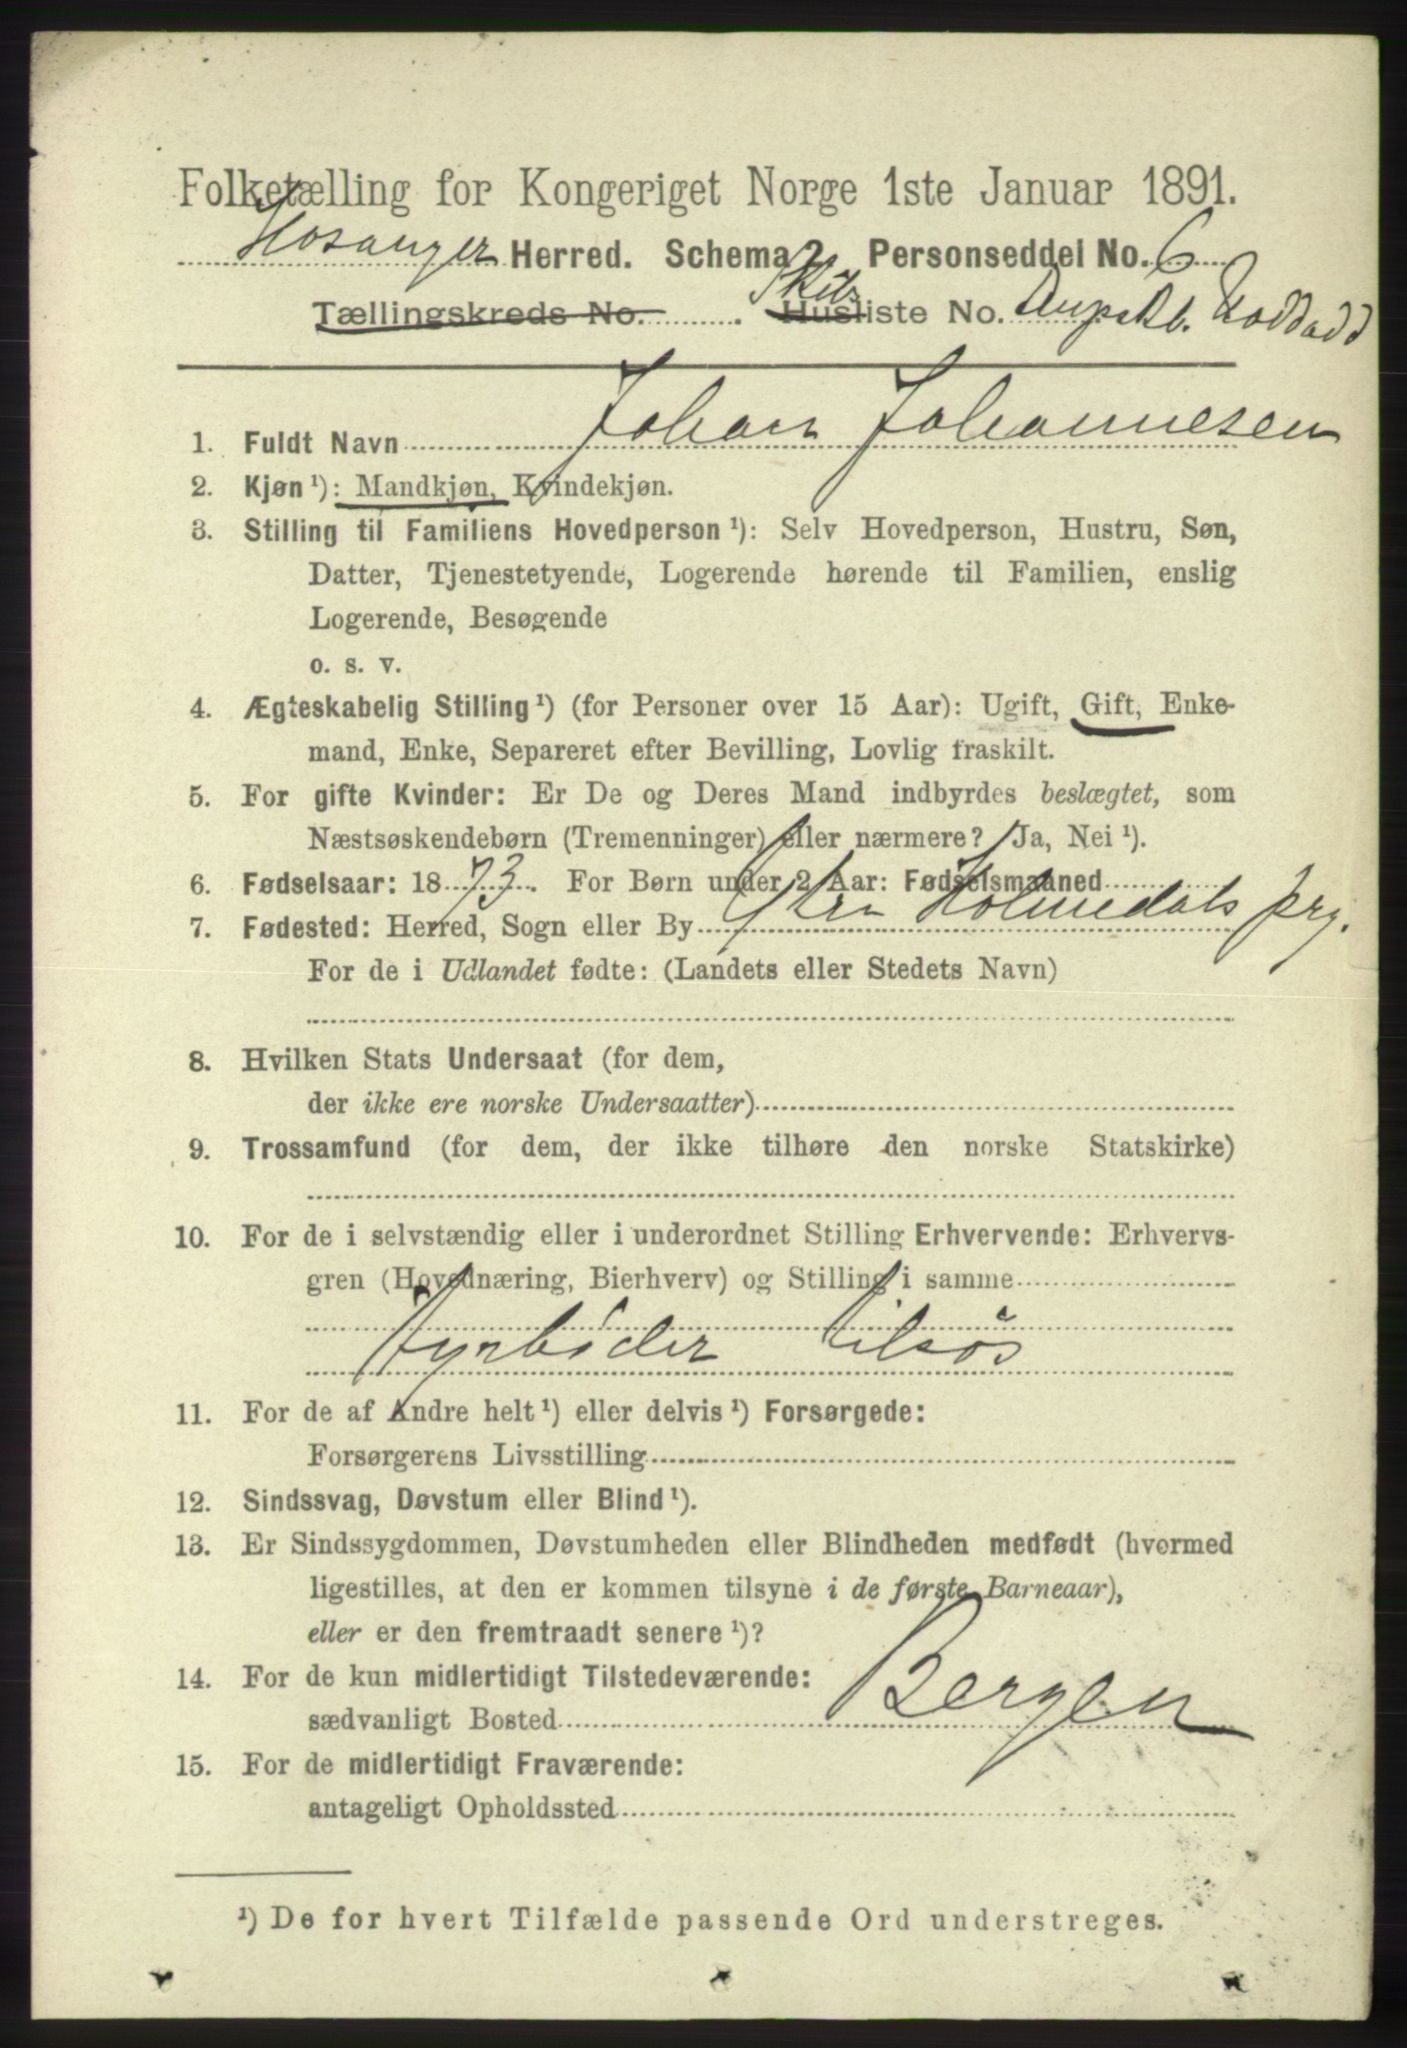 Folketælling for Kongeriget Norge 1ste Januar 1891.
Hosanger Herred. Schema 2. Personseddel No. 6
Tællingskreds No. . Skibsliste No.
1. Fuldt Navn Johan Johannesen
2. Kjøn ¹): Mandkjøn, Kvindekjøn.
3. Stilling til Familiens Hovedperson ¹): Selv Hovedperson, Hustru, Søn,
Datter, Tjenestetyende, Logerende hørende til Familien, enslig
Logerende, Besøgende
o. s. v.
4. Ægteskabelig Stilling ¹) (for Personer over 15 Aar): Ugift, Gift, Enke-
mand, Enke, Separeret efter Bevilling, Lovlig fraskilt.
5. For gifte Kvinder: Er De og Deres Mand indbyrdes beslægtet, som
Næstsøskendebørn (Tremenninger) eller nærmere? Ja, Nei ¹).
6. Fødselsaar: 1873. For Børn under 2 Aar: Fødselsmaaned
7. Fødested: Herred, Sogn eller By Ytre Holmedals prg.
For de i Udlandet fødte: (Landets eller Stedets Navn)
8. Hvilken Stats Undersaat (for dem,
der ikke ere norske Undersaatter)
9. Trossamfund (for dem, der ikke tilhøre den norske Statskirke)
10. For de i selvstændig eller i underordnet Stilling Erhvervende: Erhvervs-
gren (Hovednæring, Bierhverv) og Stilling i samme
Fyrbøder tilsøs
11. For de af Andre helt ¹) eller delvis ¹) Forsørgede:
Forsørgerens Livsstilling
12. Sindssvag, Døvstum eller Blind ¹).
13. Er Sindssygdommen, Døvstumheden eller Blindheden medfødt (hvormed
ligestilles, at den er kommen tilsyne i de første Barneaar),
eller er den fremtraadt senere ¹)?
14. For de kun midlertidigt Tilstedeværende:
sædvanligt Bosted Bergen
15. For de midlertidigt Fraværende:
antageligt Opholdssted
¹) De for hvert Tilfælde passende Ord understreges.